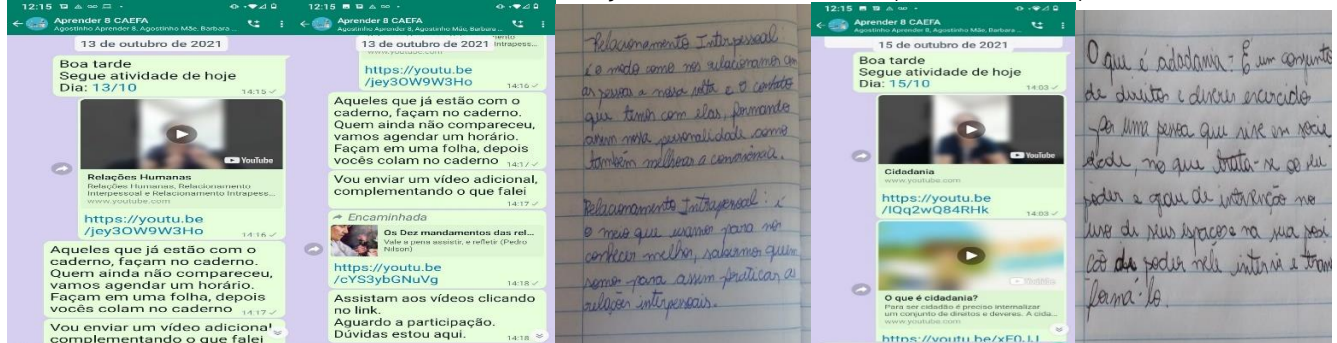 12:15
Aprender 8 CAEFA
Agostinho Aprender 8, Agostinho Mãe, Barbara ...
13 de outubro de 2021
Boa tarde
Segue atividade de hoje
Dia: 13/10
14:15
YouTube
Relações Humanas
Relações Humanas, Relacionamento
Interpessoal e Relacionamento Intrapess...
www.youtube.com
https://youtu.be
/jey3OW9W3Ho
14:16
Aqueles que já estão com o
caderno, façam no caderno.
Quem ainda não compareceu,
vamos agendar um horário.
Façam em uma folha, depois
vocês colam no caderno
14:17
Vou enviar um vídeo adicional,
complementando o que falei
12:15
Aprender 8 CAEFA
Agostinho Aprender 8, Agostinho Mãe, Barbara ...
13 de outubro de 2021
Intrapess...
https://youtu.be
/jey3OW9W3Ho
14:16
Aqueles que já estão com o
caderno, façam no caderno.
Quem ainda não compareceu,
vamos agendar um horário.
Façam em uma folha, depois
vocês colam no caderno
14:17
Vou enviar um vídeo adicional,
complementando o que falei
14:17
Encaminhada
Os Dez mandamentos das rel...
Vale a pena assistir, e refletir (Pedro
Nilson)
https://youtu.be
/cYS3ybGNuVg
14:18
Assistam aos vídeos clicando
no link.
Aguardo a participação.
Dúvidas estou aqui.
14:18
Relacionamento Interpessoal:
é o modo como nos relacionamos com
as pessoas a nossa volta e o contato
que temos com elas, formando
assim nossa personalidade como
também melhorar a convivência.
Relacionamento Intrapessoal: é
o meio que usamos para nos
conhecer melhor, sabermos quem
somos para assim praticar as
relações interpessoais.
12:15
Aprender 8 CAEFA
Agostinho Aprender 8, Agostinho Mãe, Barbara ...
15 de outubro de 2021
Boa tarde
Segue atividade de hoje
Dia: 15/10
14:03
YouTube
Cidadania
www.youtube.com
https://youtu.be
/IQq2wQ84RHk
14:03
O que é cidadania?
Para ser cidadão é preciso internalizar
um conjunto de direitos e deveres. A cida...
www.youtube.com
https://youtu.be/xE0JJ
O que é cidadania - É um conjunto
de direitos e deveres exercido
por uma pessoa que vive em socie
dade, no que trata-se ao seu
poder e grau de intervenção no
uso de seus espaços e na sua posi
ção de poder nele intervir e trans
formá-lo.